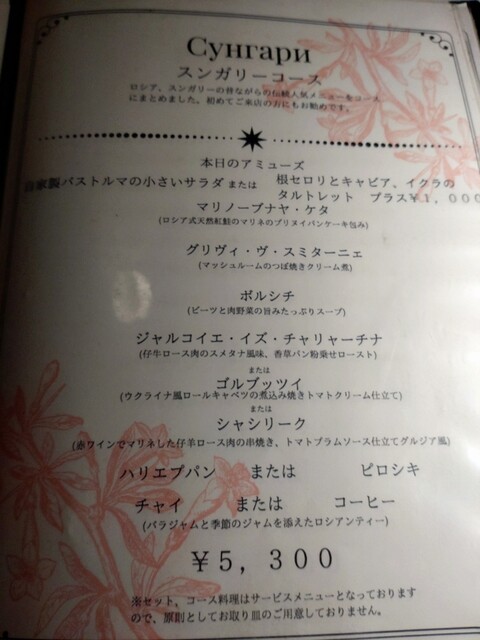 Сунгари
スンガリーコース
ロシア、スンガリーの昔ながらの伝統人気メニューをコース
にまとめました。初めてご来店の方にもお勧めです。
本日のアミューズ
自家製バストルマの小さいサラダ または 根セロリとキャビア、イクラの
タルトレット プラス¥1,000
マリノーブナヤ・ケタ
(ロシア式天然紅鮭のマリネのブリヌイパンケーキ包み)
グリヴィ・ヴ・スミターニェ
(マッシュルームのつぼ焼きクリーム煮)
ボルシチ
(ビーツと肉野菜の旨みたっぷりスープ)
ジャルコイエ・イズ・チャリャーチナ
(仔牛ロース肉のスメタナ風味、香草パン粉乗せロースト)
または
ゴルブッツイ
(ウクライナ風ロールキャベツの煮込み焼きトマトクリーム仕立て)
または
シャシリーク
(赤ワインでマリネした仔羊ロース肉の串焼き、トマトプラムソース仕立てグルジア風)
ハリエブパン または ピロシキ
チャイ または コーヒー
(バラジャムと季節のジャムを添えたロシアンティー)
¥5,300
※セット、コース料理はサービスメニューとなっております
ので、原則としてお取り皿のご用意しておりません。